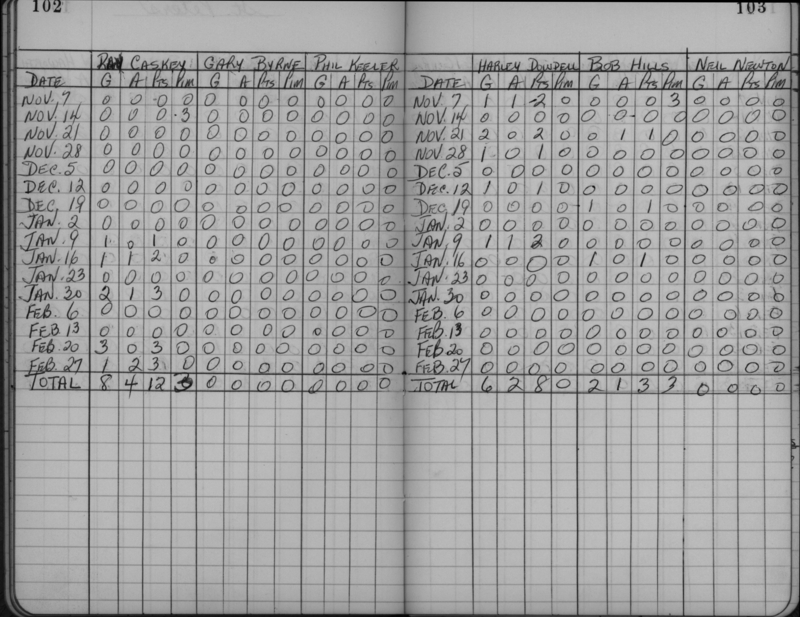 102
RAY CASKEY GARY BYRNE PHIL KEELER
DATE G A Pts Pim G A Pts Pim G A Pts Pim
NOV. 7 0 0 0 0 0 0 0 0 0 0 0 0
NOV. 14 0 0 0 3 0 0 0 0 0 0 0 0
NOV. 21 0 0 0 0 0 0 0 0 0 0 0 0
NOV. 28 0 0 0 0 0 0 0 0 0 0 0 0
DEC. 5 0 0 0 0 0 0 0 0 0 0 0 0
DEC. 12 0 0 0 0 0 0 0 0 0 0 0 0
DEC. 19 0 0 0 0 0 0 0 0 0 0 0 0
JAN. 2 0 0 0 0 0 0 0 0 0 0 0 0
JAN. 9 1 0 1 0 0 0 0 0 0 0 0 0
JAN. 16 1 1 2 0 0 0 0 0 0 0 0 0
JAN. 23 0 0 0 0 0 0 0 0 0 0 0 0
JAN. 30 2 1 3 0 0 0 0 0 0 0 0 0
FEB. 6 0 0 0 0 0 0 0 0 0 0 0 0
FEB 13 0 0 0 0 0 0 0 0 0 0 0 0
FEB. 20 3 0 3 0 0 0 0 0 0 0 0 0
FEB. 27 1 2 3 0 0 0 0 0 0 0 0 0
TOTAL 8 4 12 3 0 0 0 0 0 0 0 0
103
HARLEY DOWDELL BOB HILLS NEIL NEWTON
DATE G A Pts Pim G A Pts Pim G A Pts Pim
NOV. 7 1 1 2 0 0 0 0 3 0 0 0 0
NOV. 14 0 0 0 0 0 0 0 0 0 0 0 0
NOV. 21 2 0 2 0 0 1 1 0 0 0 0 0
NOV 28 1 0 1 0 0 0 0 0 0 0 0 0
DEC. 5 0 0 0 0 0 0 0 0 0 0 0 0
DEC. 12 1 0 1 0 0 0 0 0 0 0 0 0
DEC. 19 0 0 0 0 1 0 1 0 0 0 0 0
JAN. 2 0 0 0 0 0 0 0 0 0 0 0 0
JAN. 9 1 1 2 0 0 0 0 0 0 0 0 0
JAN. 16 0 0 0 0 1 0 1 0 0 0 0 0
JAN. 23 0 0 0 0 0 0 0 0 0 0 0
JAN. 30 0 0 0 0 0 0 0 0 0 0 0 0
FEB. 6 0 0 0 0 0 0 0 0 0 0 0 0
FEB. 13 0 0 0 0 0 0 0 0 0 0 0 0
FEB. 20 0 0 0 0 0 0 0 0 0 0 0 0
FEB. 27 0 0 0 0 0 0 0 0 0 0 0 0
TOTAL 6 2 8 0 2 1 3 3 0 0 0 0